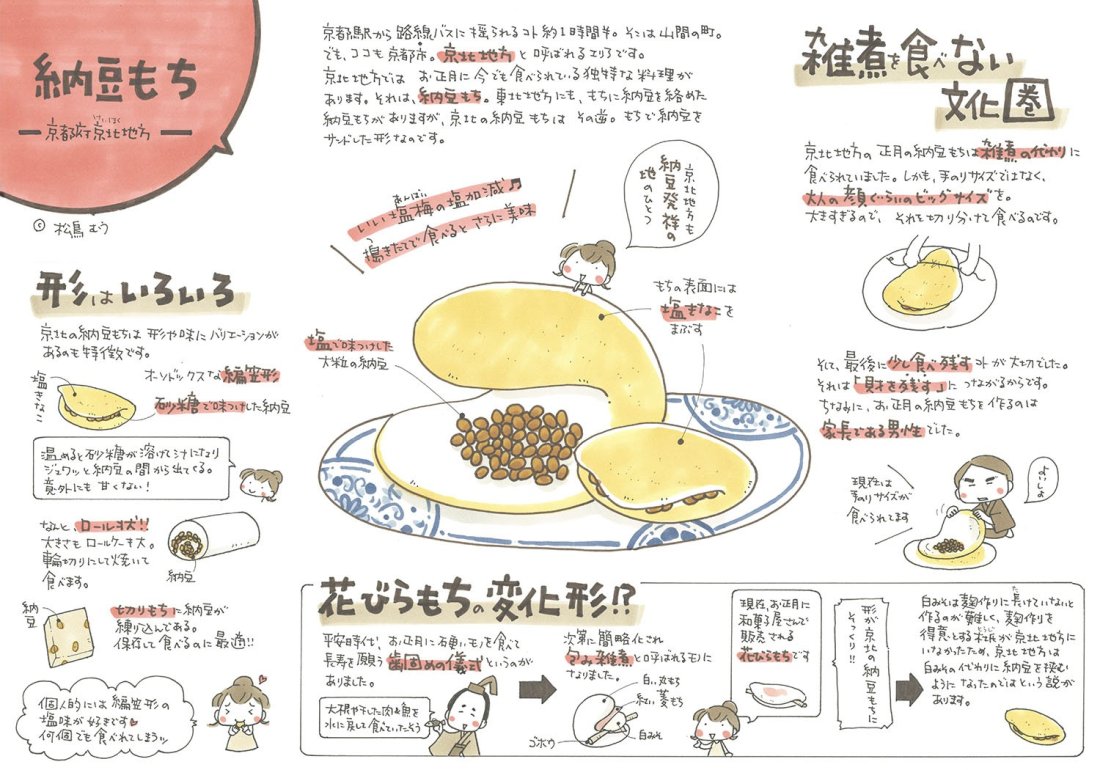 納豆もち
京都府京北地方
けいほく
© 松鳥むう
京都駅から路線バスに揺られるコト約1時間半。そこは山間の町。
でも、ココも京都府。京北地方と呼ばれるエリアです。
京北地方では お正月に今でも食べられている独特な料理が
あります。それは、納豆もち。東北地方にも、もちに納豆を絡めた
納豆もちがありますが、京北の納豆もちは その逆。もちで納豆を
サンドした形なのです。
雑煮を食べない
文化圏
京北地方の 正月の納豆もちは雑煮の代わりに
食べられていました。しかも、手のりサイズではなく、
大人の顔ぐらいのビッグサイズを。
大きすぎるので、それを切り分けて食べるのです。
そして、最後に少し食べ残すコトが大切でした。
それは「財を残す」につながるからです。
ちなみに、お正月の納豆もちを作るのは
家長である男性でした。
現在は
手のりサイズが
食べられてます
よいしょ
あんばい
いい塩梅の塩加減♫
つ
搗きたてで食べるとさらに美味
京北地方も
納豆発祥の
地のひとつ
もちの表面には
塩きなこを
まぶす
塩で味つけした
大粒の納豆
形はいろいろ
京北の納豆もちは 形や味にバリエーションが
あるのも特徴です。
オーソドックスな編笠形
塩きなこ
砂糖で味つけした納豆
温めると砂糖が溶けて汁になり
ジュワッと納豆の間から出てくる。
意外にも 甘くない!
なんと、ロール状!!
大きさもロールケーキ大。
輪切りにして焼いて
食べます。
納豆
納豆
切りもちに納豆が
練り込んである。
保存して食べるのに最適!!
個人的には 編笠形の
塩味が好きです♥
何個でも食べれてしまうッ
花びらもちの変化形!?
平安時代、お正月に石更いモノを食べて
長寿を願う歯固めの儀式というのが
ありました。
大根や干した肉や魚を
水に戻して食べていたそう
次第に簡略化され
包み雑煮と呼ばれるモノに
なりました。
白い丸もち
紅い菱もち
ゴボウ
白みそ
現在、お正月に
和菓子屋さんで
販売される
花びらもちです
形が京北の納豆もちに
そっくり!!
白みそは麹作りに長けていないと
た
作るのが難しく、麹作りを
得意とする杜氏が京北地方に
とうじ
いなかったため、京北地方は
白みその代わりに納豆を挟む
ようになったのではという説が
あります。